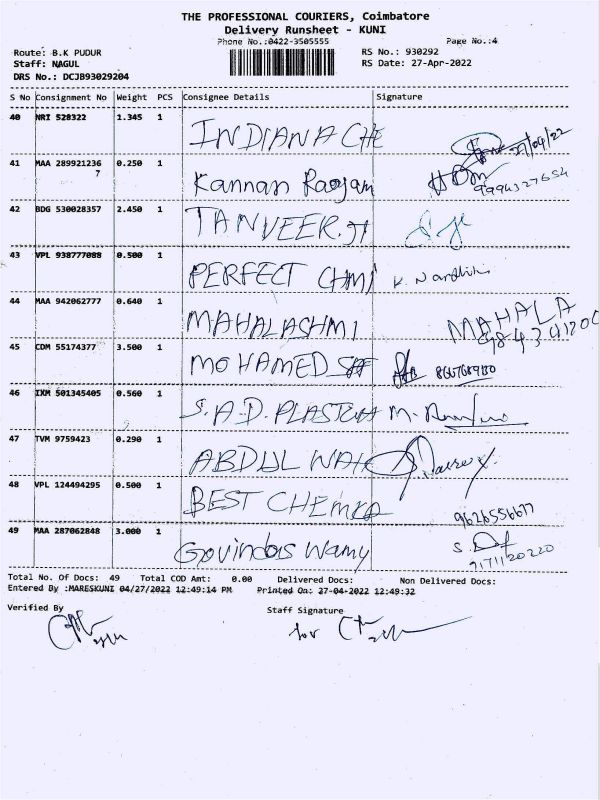 THE PROFESSIONAL COURIERS, Coimbatore
Delivery Runsheet - KUNI
Phone No.:0422-3505555 Page No.:4
Route: B.K PUDUR RS No.: 930292
Staff: NAGUL RS Date: 27-Apr-2022
DRS No.: DCJB93029204
S No Consignment No Weight PCS Consignee Details Signature
40 NRI 528322 1.345 1 INDIANA CHE
27/04/22
41 MAA 289921236 0.250 1 Kannan Raojam
7 9994327654
42 BDG 530028357 2.450 1 TANVEER.
43 VPL 938777088 0.500 1 PERFECT CHMI K. Nandhini
44 MAA 942062777 0.640 1 MAHALASHMI MAHALA
45 CDM 55174377 3.500 1 MOHAMED
46 IXM 501345405 0.560 1 S.A.D. M.
47 TVM 9759423 0.290 1 ABDUL
48 VPL 124494295 0.500 1 BEST CHEMKA
9626556677
49 MAA 287062848 3.000 1 Govindas wamy S.
Total No. Of Docs: 49 Total COD Amt: 0.00 Delivered Docs: Non Delivered Docs:
Entered By :MARESKUNI 04/27/2022 12:49:14 PM Printed On: 27-04-2022 12:49:32
Verified By Staff Signature
for